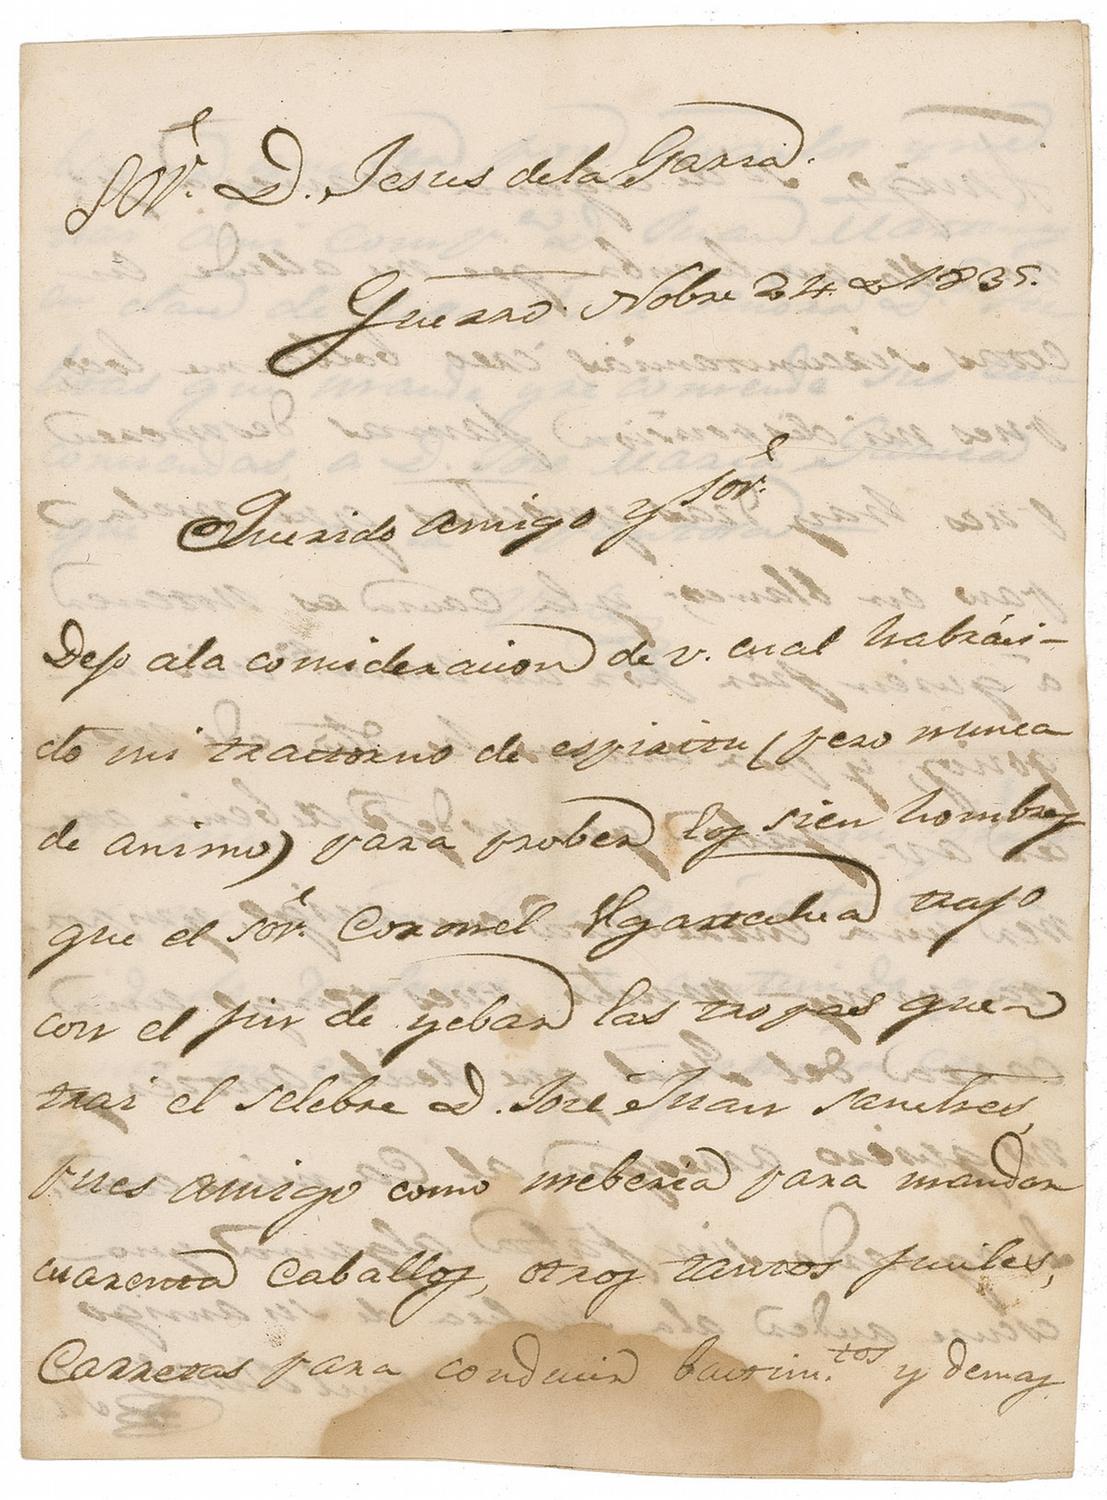 Sor. D. Jesus dela Garza.
Guerrero. Nobre 24 de 1835.
Querido amigo y Sor.
Dejo ala consideracion de v. cual habrá si-
do mi trastorno de espiritu (pero nunca
de animo) para prober los sien hombres
que el Sor. Coronel Ugartechea trajo
con el fin de yebar las tropas que
trai el selebre D. José Juan Sanches,
pues amigo como meberia para mandar
cuarenta Caballos, otros tantos fusiles,
Carretas para conducir bastim.tos y demas